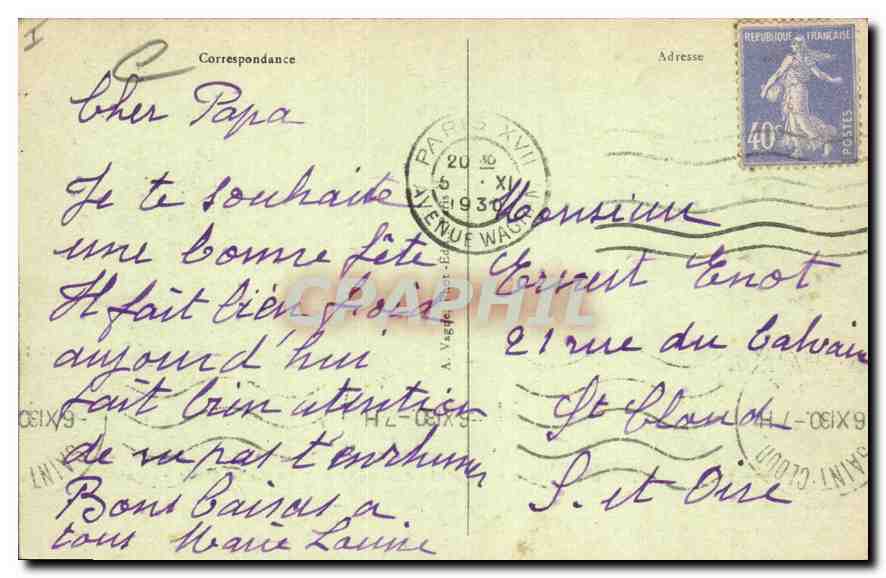 Correspondance
Adresse
REPUBLIQUE FRANÇAISE
40c
POSTES
PARIS XVII
20 30
5 . XI
1930
AVENUE WAGRAM
Cher Papa
Je te souhaite
une bonne fête
Il fait bien froid
aujourd'hui
fait bien attention
de ne pas t'enrhumer
Bons baisers a
tous Marie Louise
Monsieur
Ernest Enot
21 rue du Calvaire
St Cloud
S. et Oise
A. Vagne
6 XI30 -7H
6 XI30 -7H
SAINT
SAINT-CLOUD
CPAPHIL